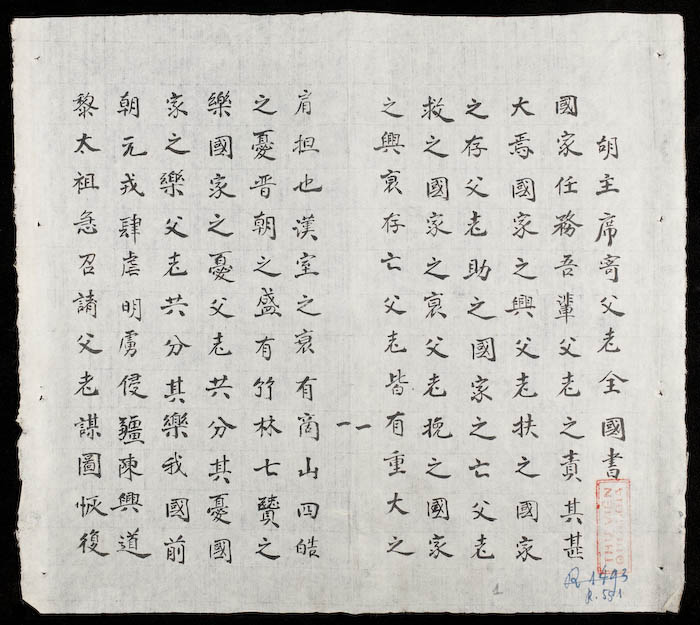 胡主席寄父老全國書
國家任務吾輩父老之責其甚
大焉國家之興父老扶之國家
之存父老助之國家之亡父老
救之國家之衰父老挽之國家
之興衰存亡父老皆有重大之
一一
肩担也漢室之衰有商山四皓
之憂晋朝之盛有竹林七賢之
樂國家之憂父老共分其憂國
家之樂父老共分其樂我國前
朝元戎肆虐明虜侵疆陳興道
黎太祖急召請父老謀圖恢復
R 1493
R.551
1